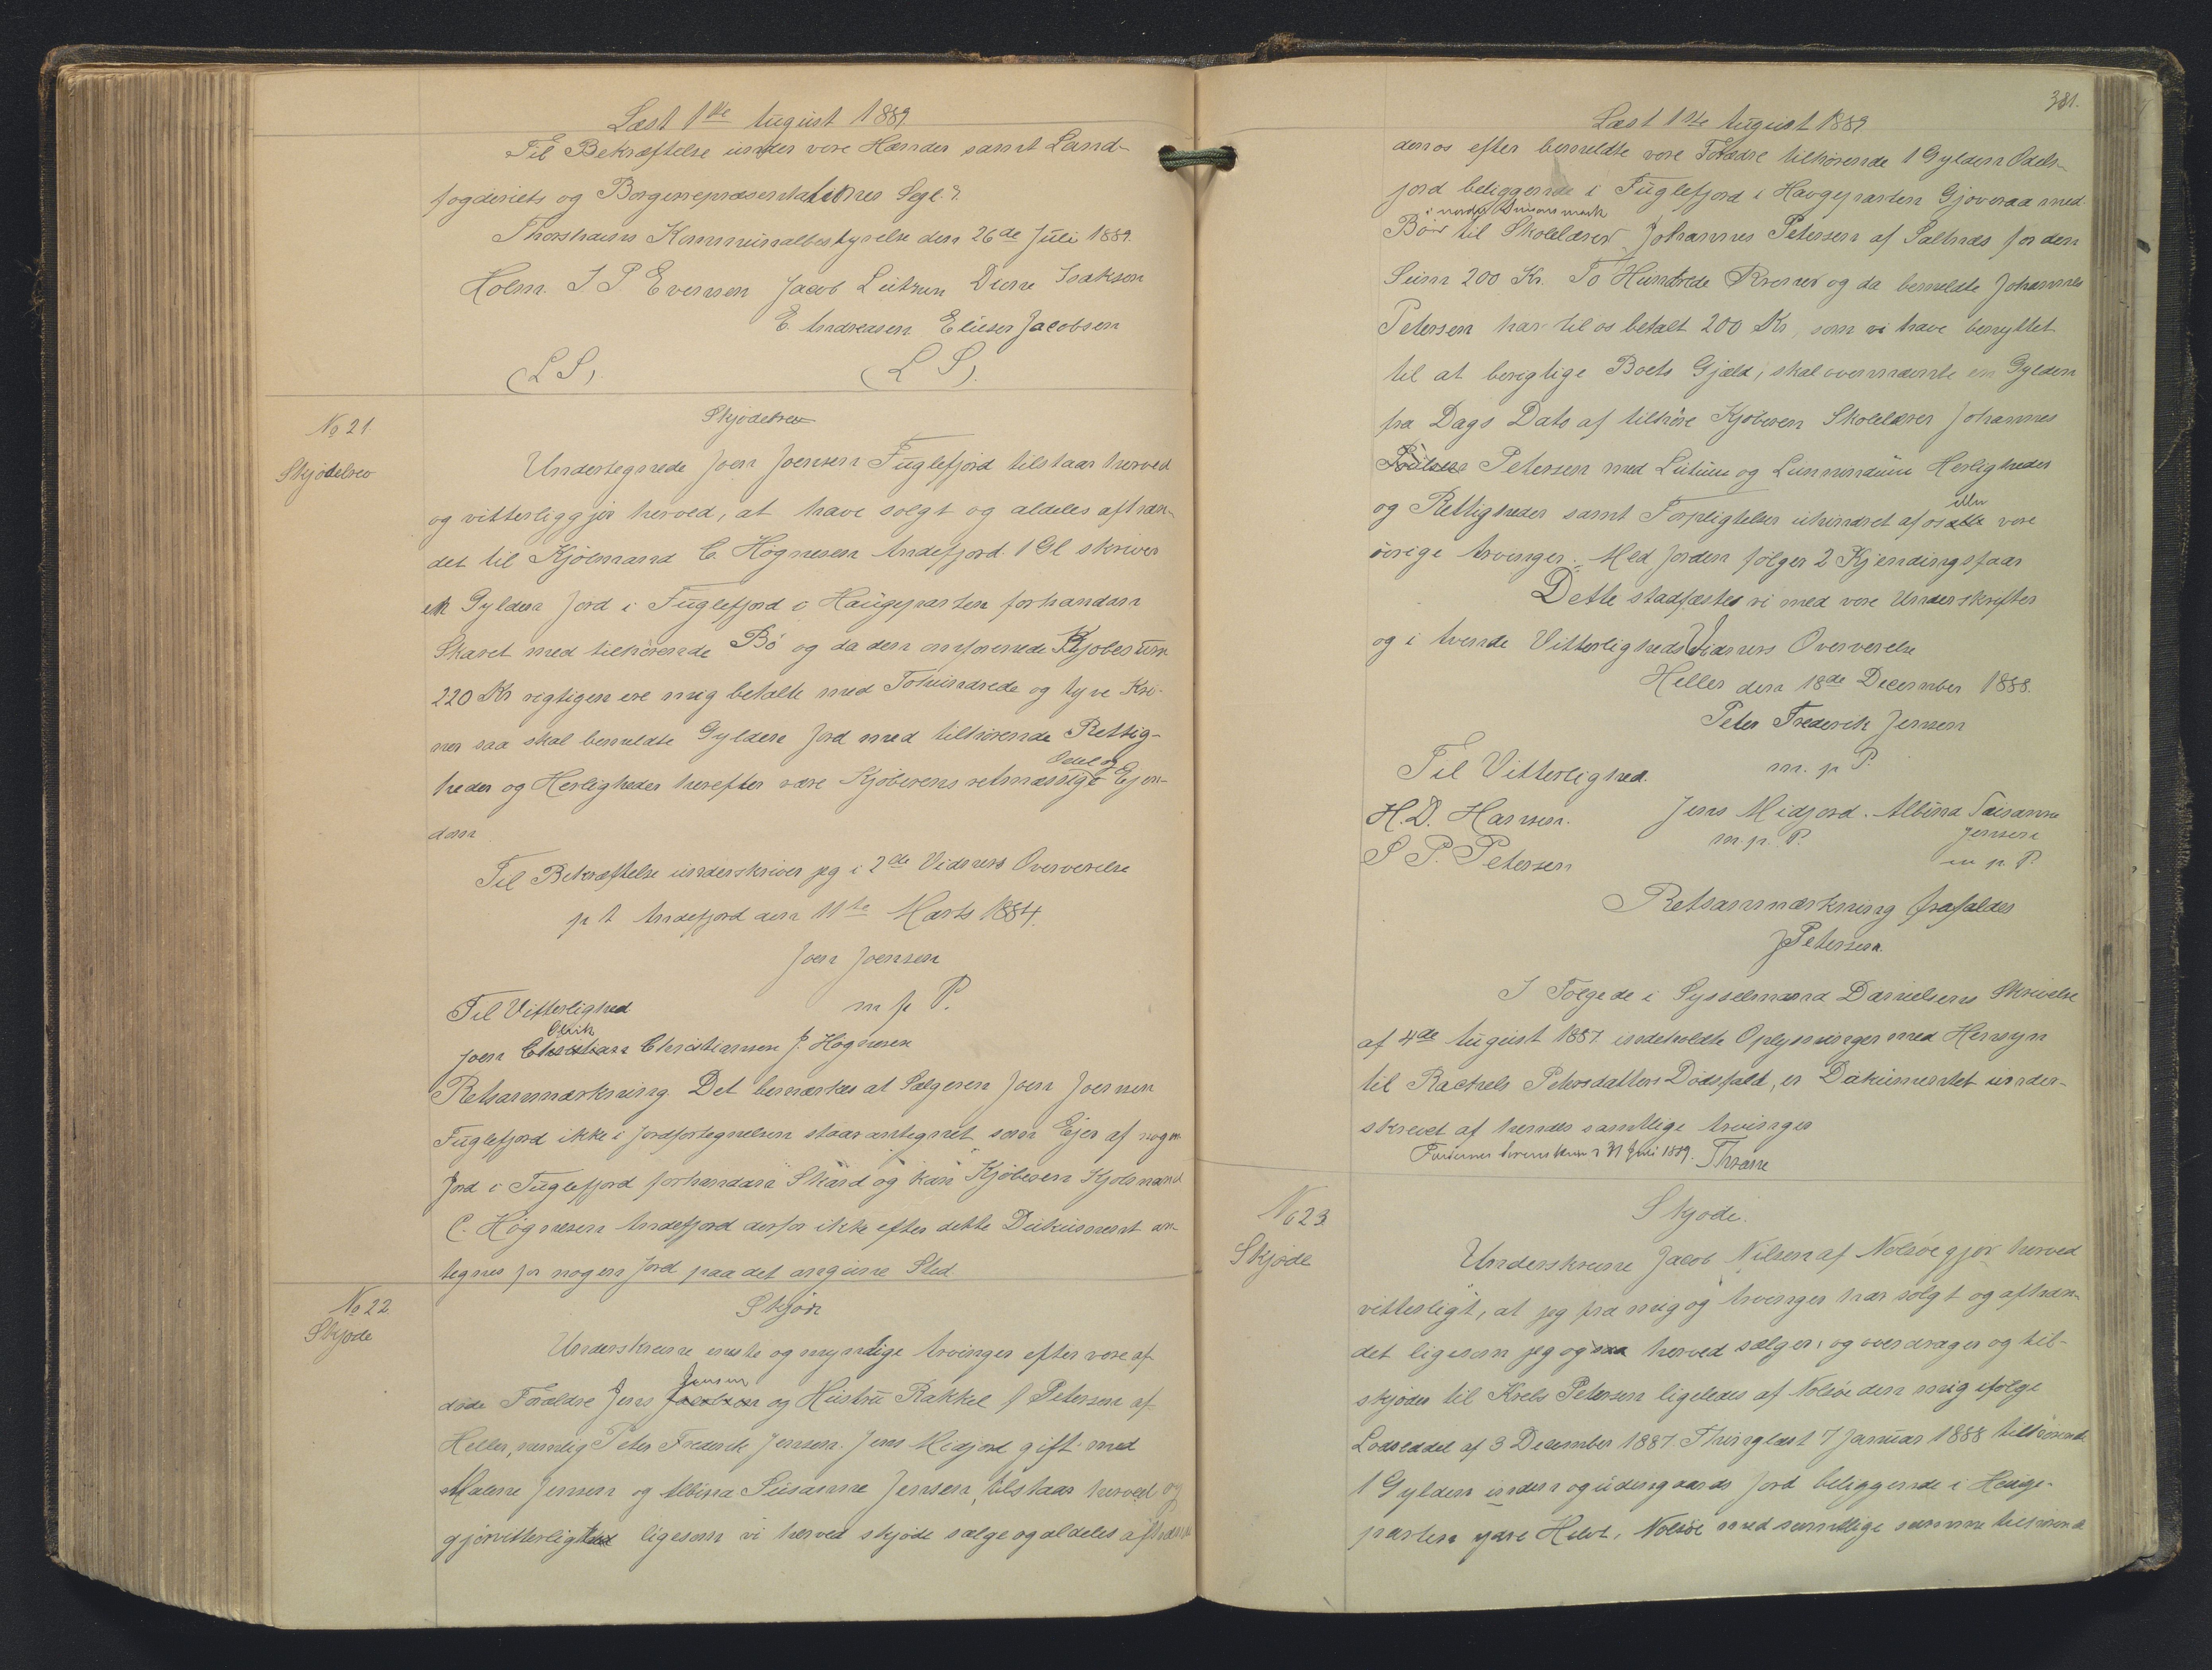 Læst 1ste August 1889
Til Bekræftelse under vore Hænder samt Land-
fogderiets og Borgerrepræsentationens Segl.
Thorshavns Kommunalbestyrelse den 26de Juli 1889.
Holm. I P Evensen Jacob Lützen Isakson
E. Andreasen Elieser Jacobsen
(L S). (L S).
No 21.
Skjødebrev
Skjødebrev
Undertegnede Joen Joensen Fuglefjord tilstaar herved
og vitterliggjør herved, at have solgt og aldeles afhæn-
det til Kjølmand C. Høgnesen Andefjord 1 Gl skriver
en Gylden Jord i Fuglefjord i Haugeparten forhandan
Skaret med tilhørende Bø og da den omforenede Kjøbesum
220 Kr rigtigen ere mig betalte med Tohundrede og tyve Kro-
ner saa skal bemeldte Gylden Jord med tilhørende Rettig-
heder og Herligheder herefter være Kjøberens retmæssige Ejen-
dom
Til Bekræftelse underskriver jeg i 2de Vidners Overværelse
p t Andefjord den 11te Marts 1884.
Joen Joensen
m p P.
Til Vitterlighed
Joen Christian Christiansen J. Høgnesen
Retsanmærkning. Det bemærkes at Sælgeren Joen Joensen
Fuglefjord ikke i Jordfortegnelsen staar antegnet som Ejer af nogen
Jord i Fuglefjord forhandan Skard og kan Kjøberen Kjølmand
C. Høgnesen Andefjord derfor ikke efter dette Dukument an-
tegnes for nogen Jord paa det angivne Sted.
No 22.
Skjøde
Skjøde
Underskrevne eneste og myndige Arvinger efter vore af-
Jensen
døde Forældre Jens Jacobsen og Hustru Rakkel f Petersen af
Heller, nemlig Peter Frederik Jensen. Jens Midjord gift med
Malene Jensen og Albina Susanne Jensen, tilstaar herved og
gjør vitterligt ligesom vi herved skjøde sælge og aldeles afhænde
381.
Læst 1ste August 1889
den os efter bemeldte vore Forældre tilhørende 1 Gylden Odels-
jord beliggende i Fuglefjord i Havgeparten Gjoveraa med
Bø til Skolelærer Johannes Petersen af Saltnæs for den
Sum 200 Kr. To Hundrede Kroner og da bemeldte Johannes
Petersen har til os betalt 200 Kr, som vi have benyttet
til at berigtige Boets Gjæld, skal ovennævnte en Gylden
fra Dags Dato af tilhøre Kjøberen Skolelærer Johannes
Petersen med Lutum og Lunnendum Herligheder
eller
og Rettigheder samt Forpligtelser uhindret af os vore
øvrige Arvinger. Med Jorden følger 2 Kjendingsfaar
Dette stadfæstes vi med vore Underskrifter
og i tvende Vitterligheds Vidners Overværelse
Heller den 18de December 1888.
Peter Frederik Jensen
m. p P.
Til Vitterlighed.
H. D. Hansen. Jens Midjord. Albina Susanne
m. p. P. Jensen
S P. Petersen m p. P.
Retsanmærkning frafaldes
JPetersen.
I Følge de i Sysselmand Danielsens Skrivelse
af 4de August 1887 indeholdte Oplysninger med Hensyn
til Rachels Petersdatters Dødsfald, er Dukumentet under-
skrevet af hendes samtlige Arvinger
31 Juli 1889. Thrane
No 23.
Skjøde
Skjøde.
Underskrevne Jacob Nilsen af Nolsøe gjør herved
vitterligt, at jeg fra mig og Arvinger har solgt og afhæn-
det ligesom jeg ogsaa herved sælger og overdrager og til-
skjøder til Krebs Petersen ligeledes af Nolsøe den mig ifølge
Lodseddel af 3 December 1887 Thinglæst 7 Januar 1888 tilhørende
1 Gylden inden og udengaards Jord beliggende i Hauge-
parten , Nolsøe med samtlige samme tilhørende